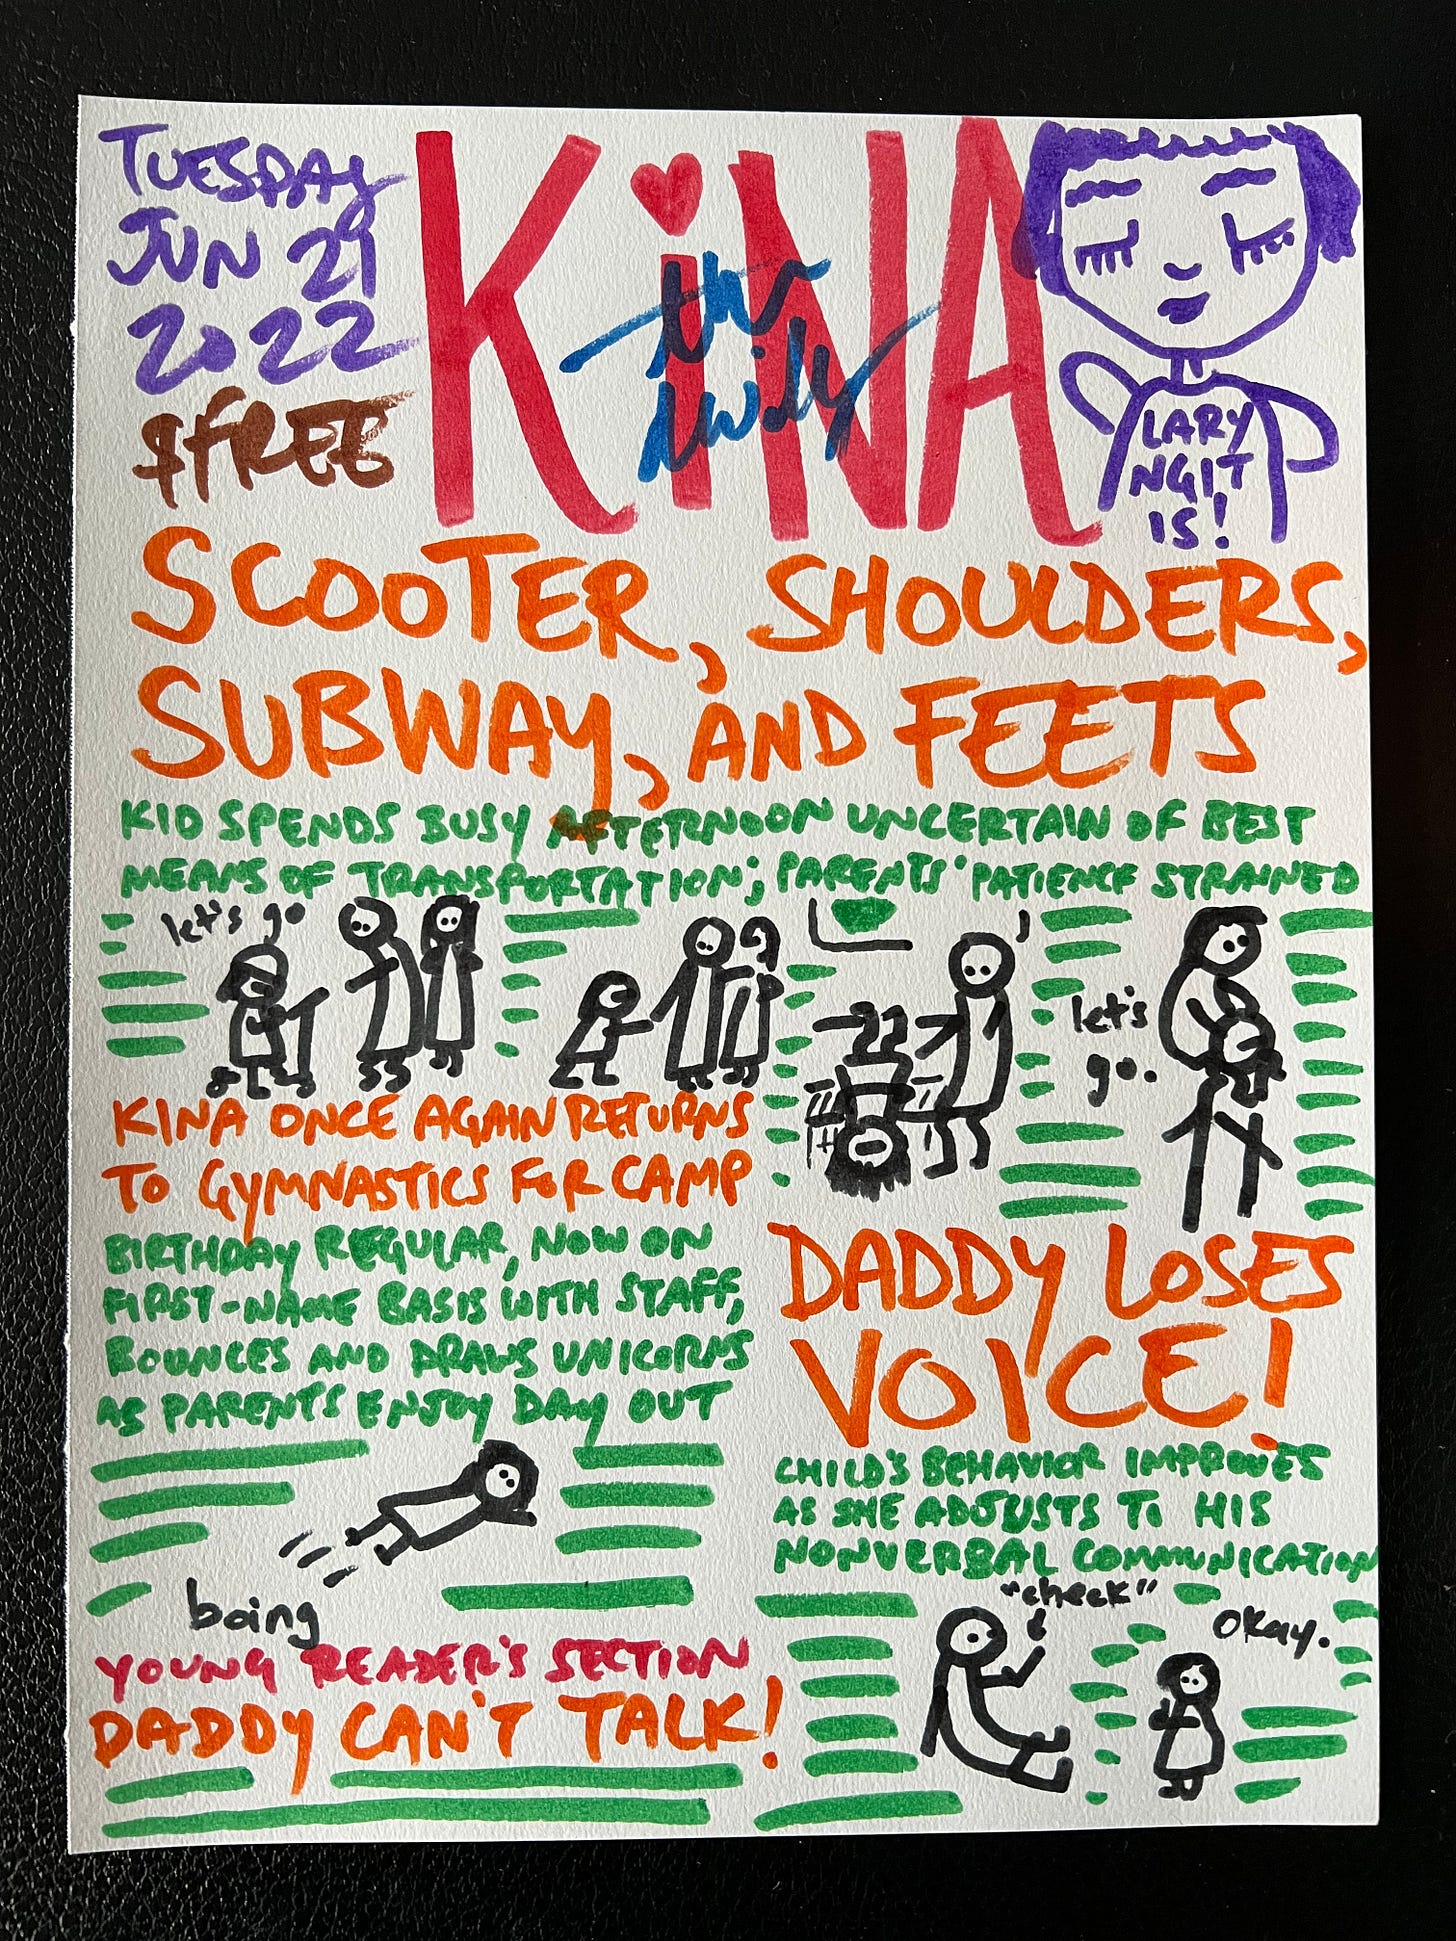 TUESDAY
JUN 21
2022
$FREE
KiNA
the
daily
LARY
NGIT
IS!
SCOOTER, SHOULDERS,
SUBWAY, AND FEETS
KID SPENDS BUSY AFTERNOON UNCERTAIN OF BEST
MEANS OF TRANSPORTATION; PARENTS' PATIENCE STRAINED
let's go
let's
go.
KINA ONCE AGAIN RETURNS
TO GYMNASTICS FOR CAMP
BIRTHDAY REGULAR, NOW ON
FIRST-NAME BASIS WITH STAFF,
BOUNCES AND DRAWS UNICORNS
AS PARENTS ENJOY DAY OUT
boing
YOUNG READER'S SECTION
DADDY CAN'T TALK!
DADDY LOSES
VOICE!
CHILD'S BEHAVIOR IMPROVES
AS SHE ADJUSTS TO HIS
NONVERBAL COMMUNICATION
"check"
okay.